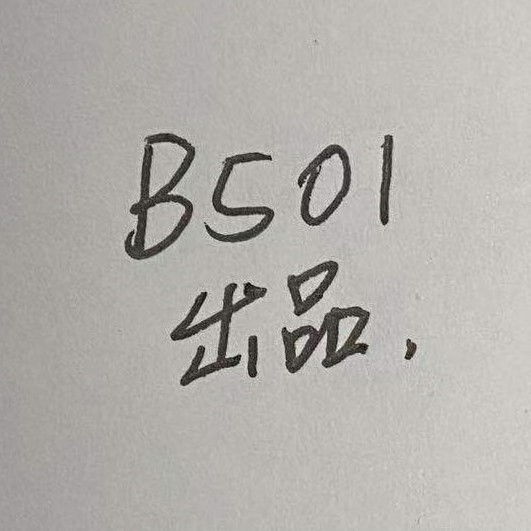 B501
出品.